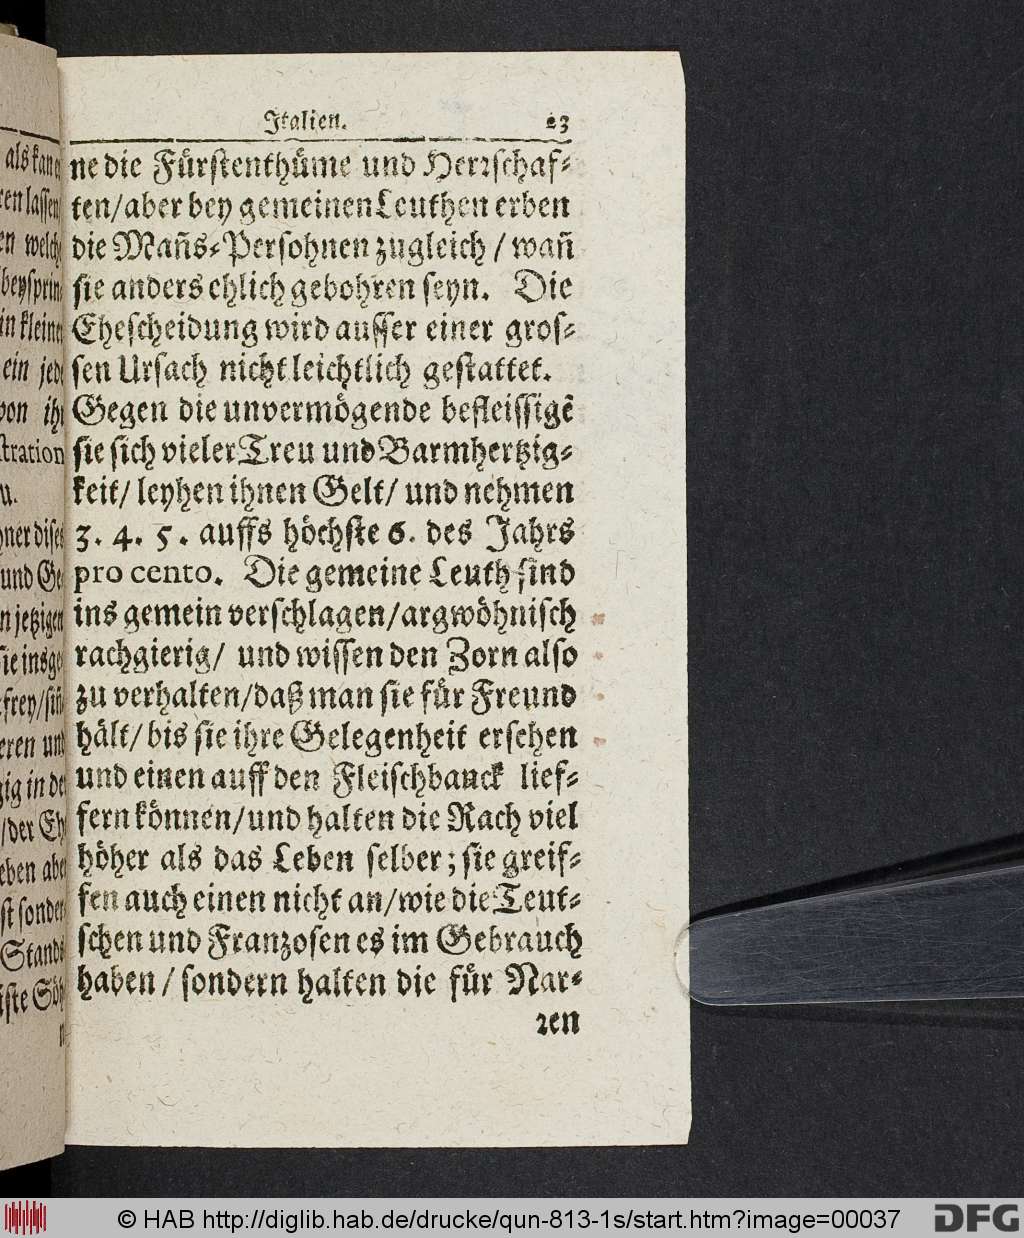 Italien. 23
ne die Fürstenthüme und Herꝛschaf-
ten/ aber bey gemeinen Leuthen erben
die Mañs-Persohnen zugleich / wañ
sie anders ehlich gebohren seyn. Die
Ehescheidung wird ausser einer gros-
sen Ursach nicht leichtlich gestattet.
Gegen die unvermögende befleissigẽ
sie sich vieler Treu und Barmhertzig-
keit/ leyhen ihnen Gelt/ und nehmen
3. 4. 5. auffs höchste 6. des Jahrs
pro cento. Die gemeine Leuth sind
ins gemein verschlagen/ argwöhnisch
rachgierig/ und wissen den Zorn also
zu verhalten/ daß man sie für Freund
hält/ bis sie ihre Gelegenheit ersehen
und einen auff den Fleischbanck lief-
fern können/ und halten die Rach viel
höher als das Leben selber; sie greif-
fen auch einen nicht an/ wie die Teut-
schen und Franzosen es im Gebrauch
haben / sondern halten die für Nar-
ꝛen
als kan
ren lassen
welch
beysprin
in kleine
ein jed
von ih
stration
u.
ner dise
und Ge
n jetzigen
sie insge
frey/ sin
eren und
zig in de
/der Eh
eben abe
st sonder
Stand
iste Söh
© HAB http://diglib.hab.de/drucke/qun-813-1s/start.htm?image=00037
DFG